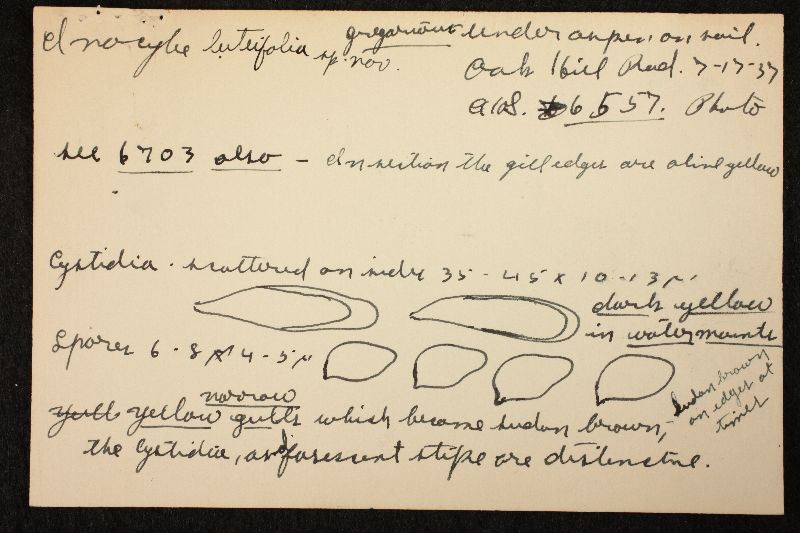 Inocybe luteifolia sp. nov. gregarious under aspen on soil.
Oak Hill Road. 7-17-37
AHS. 6557. Photo
see 6703 also - In section the gill edges are olive yellow
Cystidia - scattered on sides 35-45 x 10-13 µ.
dark yellow
in water mounts
Spores 6-8 x 4-5 µ
narrow
yellow gills which become sudan brown,
sudan brown
on edges at
times
the cystidia, and stipe are distinctive.